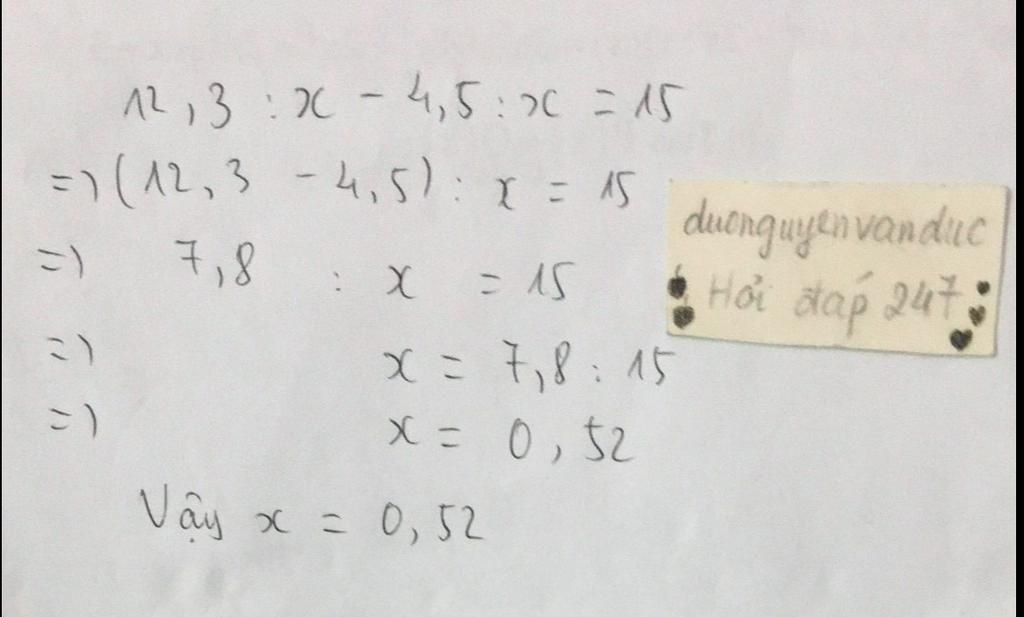 12,3 : x - 4,5 : x = 15
=> (12,3 - 4,5) : x = 15
=> 7,8 : x = 15
=> x = 7,8 : 15
=> x = 0,52
Vậy x = 0,52
duonguyenvanduc
Hỏi đáp 247